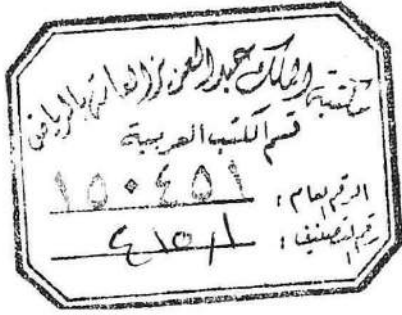 مكتبة الملك عبد العزيز العامة بالرياض
قسم الكتب العربية
الرقم العام : ١٥٠٤٥١
رقم التصنيف :